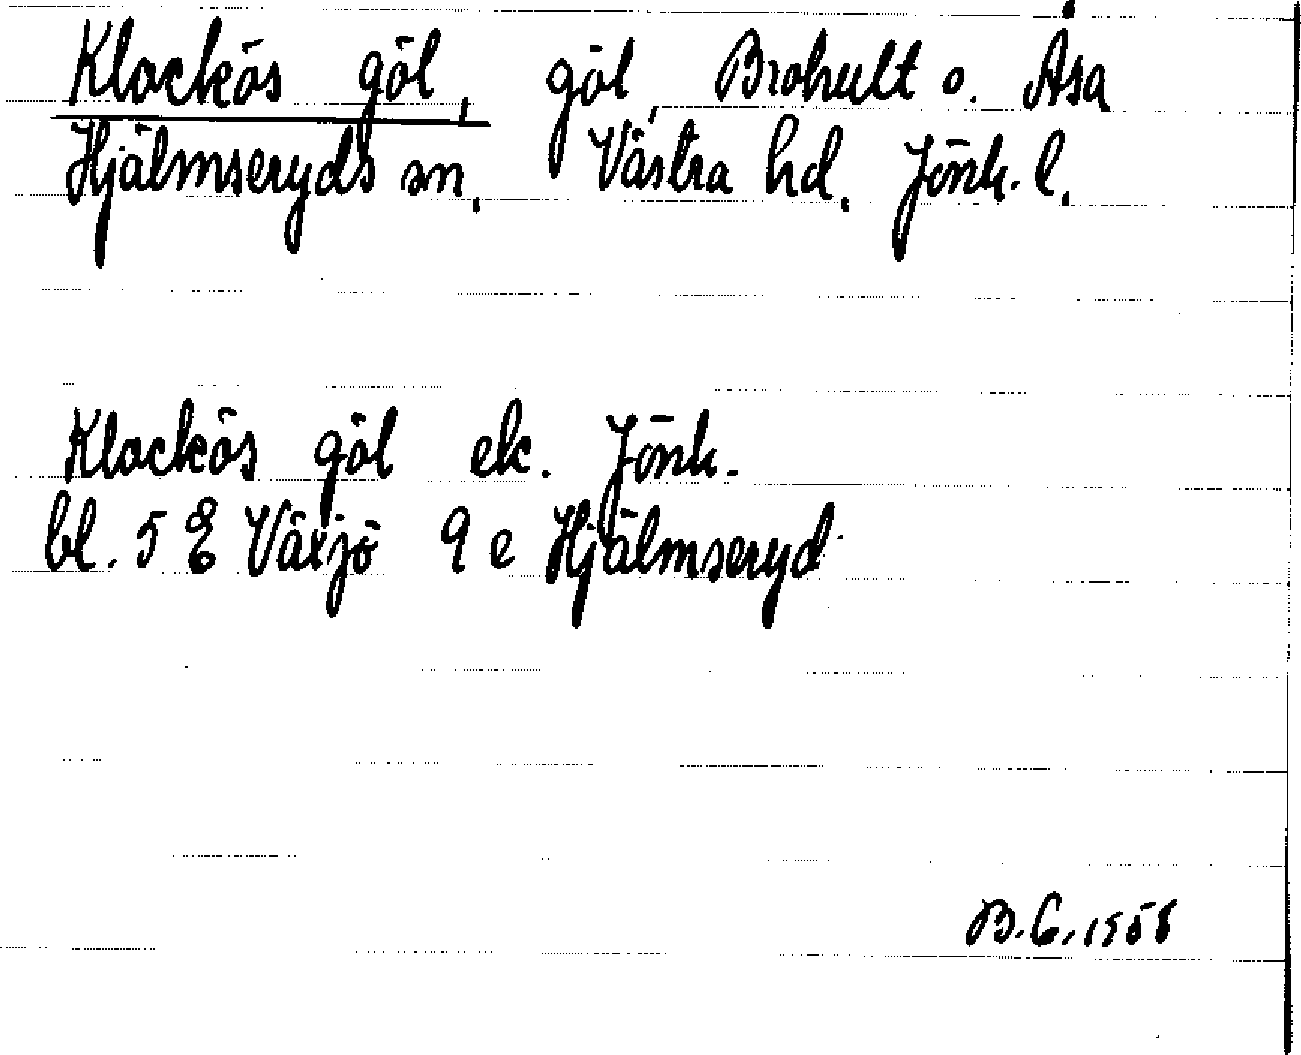 Klockös göl, göl, Brohult o. Åsa
Hjälmseryds sn. Västra hd. Jönk. l.
Klockös göl ek. Jönk.
bl. 5 E Växjö 9 e Hjälmseryd
B.G. 1956